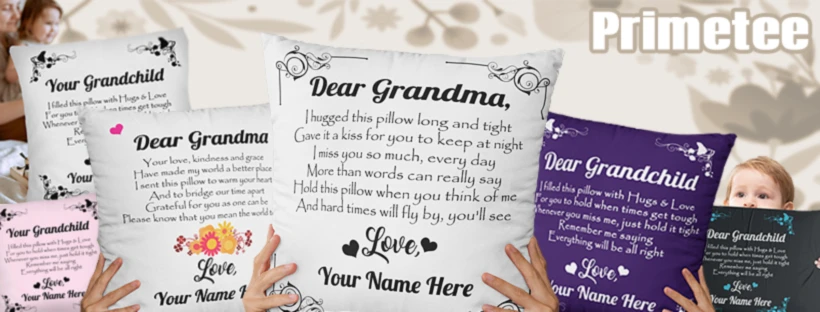 Primetee
Your Grandchild
I filled this pillow with Hugs & Love
For you to hold when times get tough
Whenever
Remember
Every
Dear Grandma
Your love, kindness and grace
Have made my world a better place
I sent this pillow to warm your heart
And to bridge our time apart
Grateful for you as one can be
Please know that you mean the world t
Love,
Your Name H
Dear Grandma,
I hugged this pillow long and tight
Gave it a kiss for you to keep at night
I miss you so much, every day
More than words can really say
Hold this pillow when you think of me
And hard times will fly by, you'll see
Love,
Your Name Here
Dear Grandchild
I filled this pillow with Hugs & Love
For you to hold when times get tough
Whenever you miss me, just hold it tight
Remember me saying
Everything will be all right
Love,
Your Name Here
Your Grandchild
I filled this pillow with Hugs & Love
For you to hold when times get tough
Whenever you miss me, just hold it tight
Remember me saying
Everything will be all right
Love,
Your Name Here
Dear Grandchild
I filled this pillow with Hugs & Love
For you to hold when times get tough
Whenever you miss me, just hold it tight
Remember me saying
Everything will be all right
Love,
Your Name Here